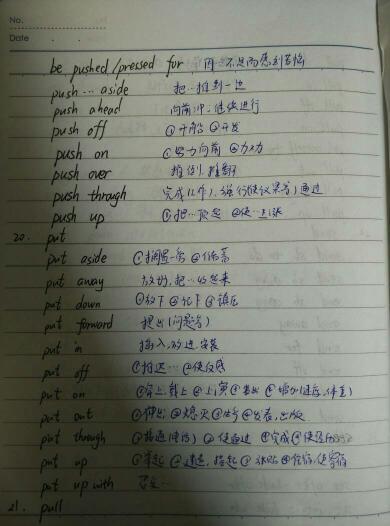 No.
Date
be pushed/pressed for 因不足而感到苦恼
push … aside 把…推到一边
push ahead 向前冲,继续进行
push off ①开船 ②开发
push on ①努力向前 ②力劝
push over 推倒,推翻
push through 完成(工作),强行使(议案等)通过
push up ①把…顶起 ②使…上涨
20. put
put aside ①搁置一旁 ②储蓄
put away 放好,把…收起来
put down ①放下 ②记下 ③镇压
put forward 提出(问题等)
put in 插入,放进,安装
put off ①推迟… ②使反感
put on ①穿上,戴上 ②上演 ③ ④增加(速度,体重)
put out ①伸出 ②熄灭 ③ ④发表,出版
put through ①接通(电话) ②使通过 ③完成 ④使
put up ①举起 ②建造,搭起 ③张贴 ④
put up with 忍受…
21. pull